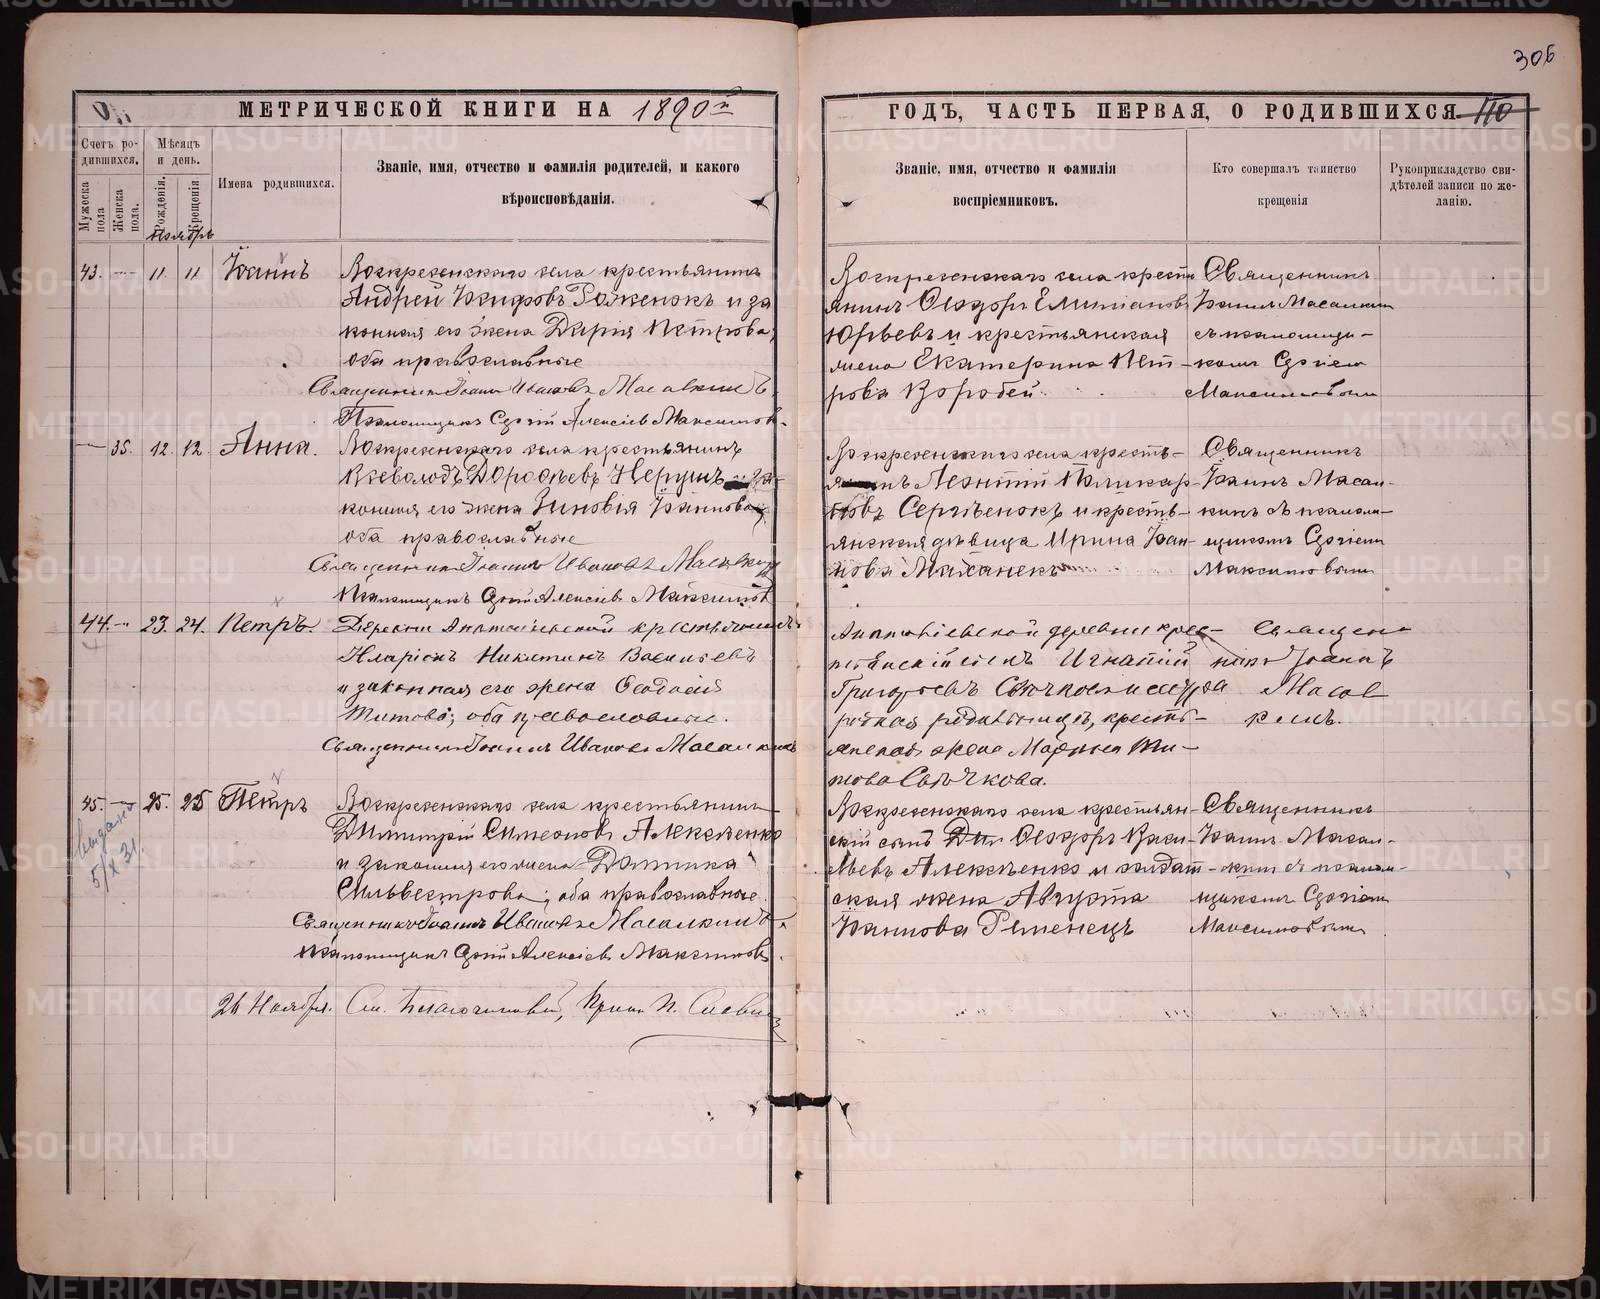 306
МЕТРИЧЕСКОЙ КНИГИ НА 1890й
ГОДЪ, ЧАСТЬ ПЕРВАЯ, О РОДИВШИХСЯ 110
Счетъ родившихся.
Мужеска пола
Женска пола.
Мѣсяцъ и день.
Рожденія.
Крещенія
Имена родившихся.
Званіе, имя, отчество и фамилія родителей, и какого
вѣроисповѣданія.
Званіе, имя, отчество и фамилія
воспріемниковъ.
Кто совершалъ таинство
крещенія
Рукоприкладство сви-
дѣтелей записи по же-
ланію.
Ноябрь
43. 11. 11 Іоаннъ
Воскресенскаго села крестьянинъ
Андрей
и за
конная его жена Дарія Петрова,
оба православные
Священникъ Іоаннъ Ивановъ Масалкинъ
Псаломщикъ Сергій Алексіевъ Максимовъ.
Воскресенскаго села кресть
янинъ Ѳеодоръ Емиліановъ
Юрьевъ и крестьянская
жена Екатерина Пет
рова Воробей.
Священникъ
Іоаннъ Масалкинъ
съ псаломщи-
комъ Сергіем
Максимовым
35. 12. 12. Анна.
Воскресенскаго села крестьянинъ
Всеволодъ Дорофѣевъ и за-
конная его жена Зиновія Іоаннова
оба православные
Священникъ Іоаннъ Ивановъ Масалкинъ
Псаломщикъ Сергій Алексіевъ Максимов
Воскресенскаго села кресть-
янинъ Леонтій Поликар-
повъ Сергіенокъ и кресть-
янская дѣвица Ирина Іоан-
нова
Священникъ
Іоаннъ Масал-
кинъ съ псалом-
щикомъ Сергіем
Максимовым
44. 23. 24. Петръ.
Деревни крестьянинъ
Иларіонъ Никитинъ Васильевъ
и законная его жена Ѳеодосія
Титова; оба православные.
Священникъ Іоаннъ Ивановъ Масалкинъ
деревни крес-
Игнатій
Григорьевъ
кресть-
янская жена Ти-
това Сычкова.
Священ
никъ Іоаннъ
Масал
кинъ.
45. 25. 25 Петръ
Воскресенскаго села крестьянинъ
Димитрій Симеоновъ Алексѣенко
и законная его жена Домника
Сильвестрова; оба православные.
Священникъ Іоаннъ Ивановъ Масалкинъ
Псаломщикъ Сергій Алексіевъ Максимовъ.
Воскресенскаго села крестьян-
скій сынъ Ѳеодоръ Васи-
льевъ Алексѣенко и солдат-
ская жена Августа
Іоаннова Ременецъ
Священникъ
Іоаннъ Масал-
кинъ съ псалом-
щикомъ Сергіем
Максимовым
выдано
5/X 31.
26 Ноября. См. Благочинный,
METRIKI.GASO-URAL.RU